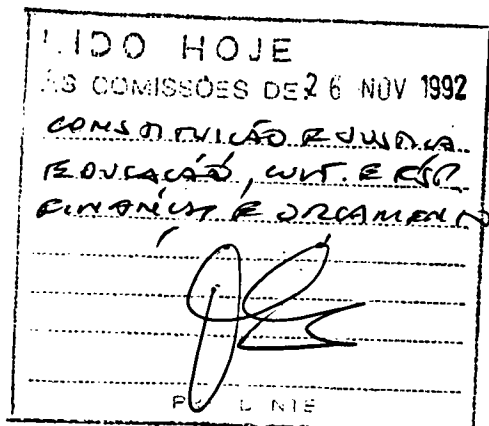 LIDO HOJE
ÀS COMISSÕES DE: 26 NOV 1992
CONSTITUIÇÃO E JUSTIÇA
EDUCAÇÃO, CULT. E ESP.
FINANÇAS E ORÇAMENTO
PRESIDENTE